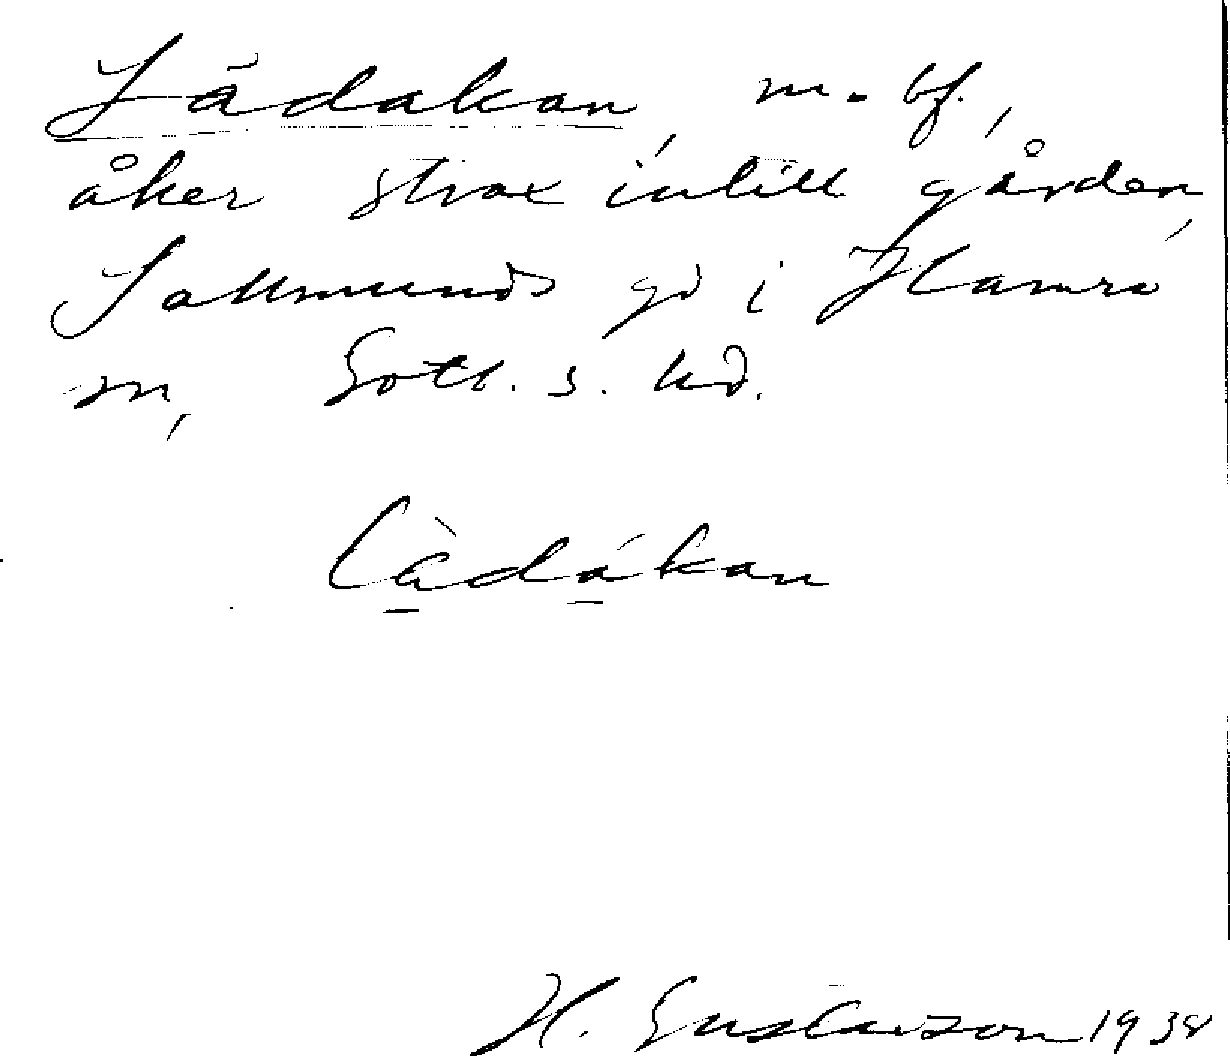 Lādakan, m. bf.,
åker strax intill gården,
Sallmunds gd i Hamra
sn, Gotl. s. hd.
làdákan
H. Gustavson 1938